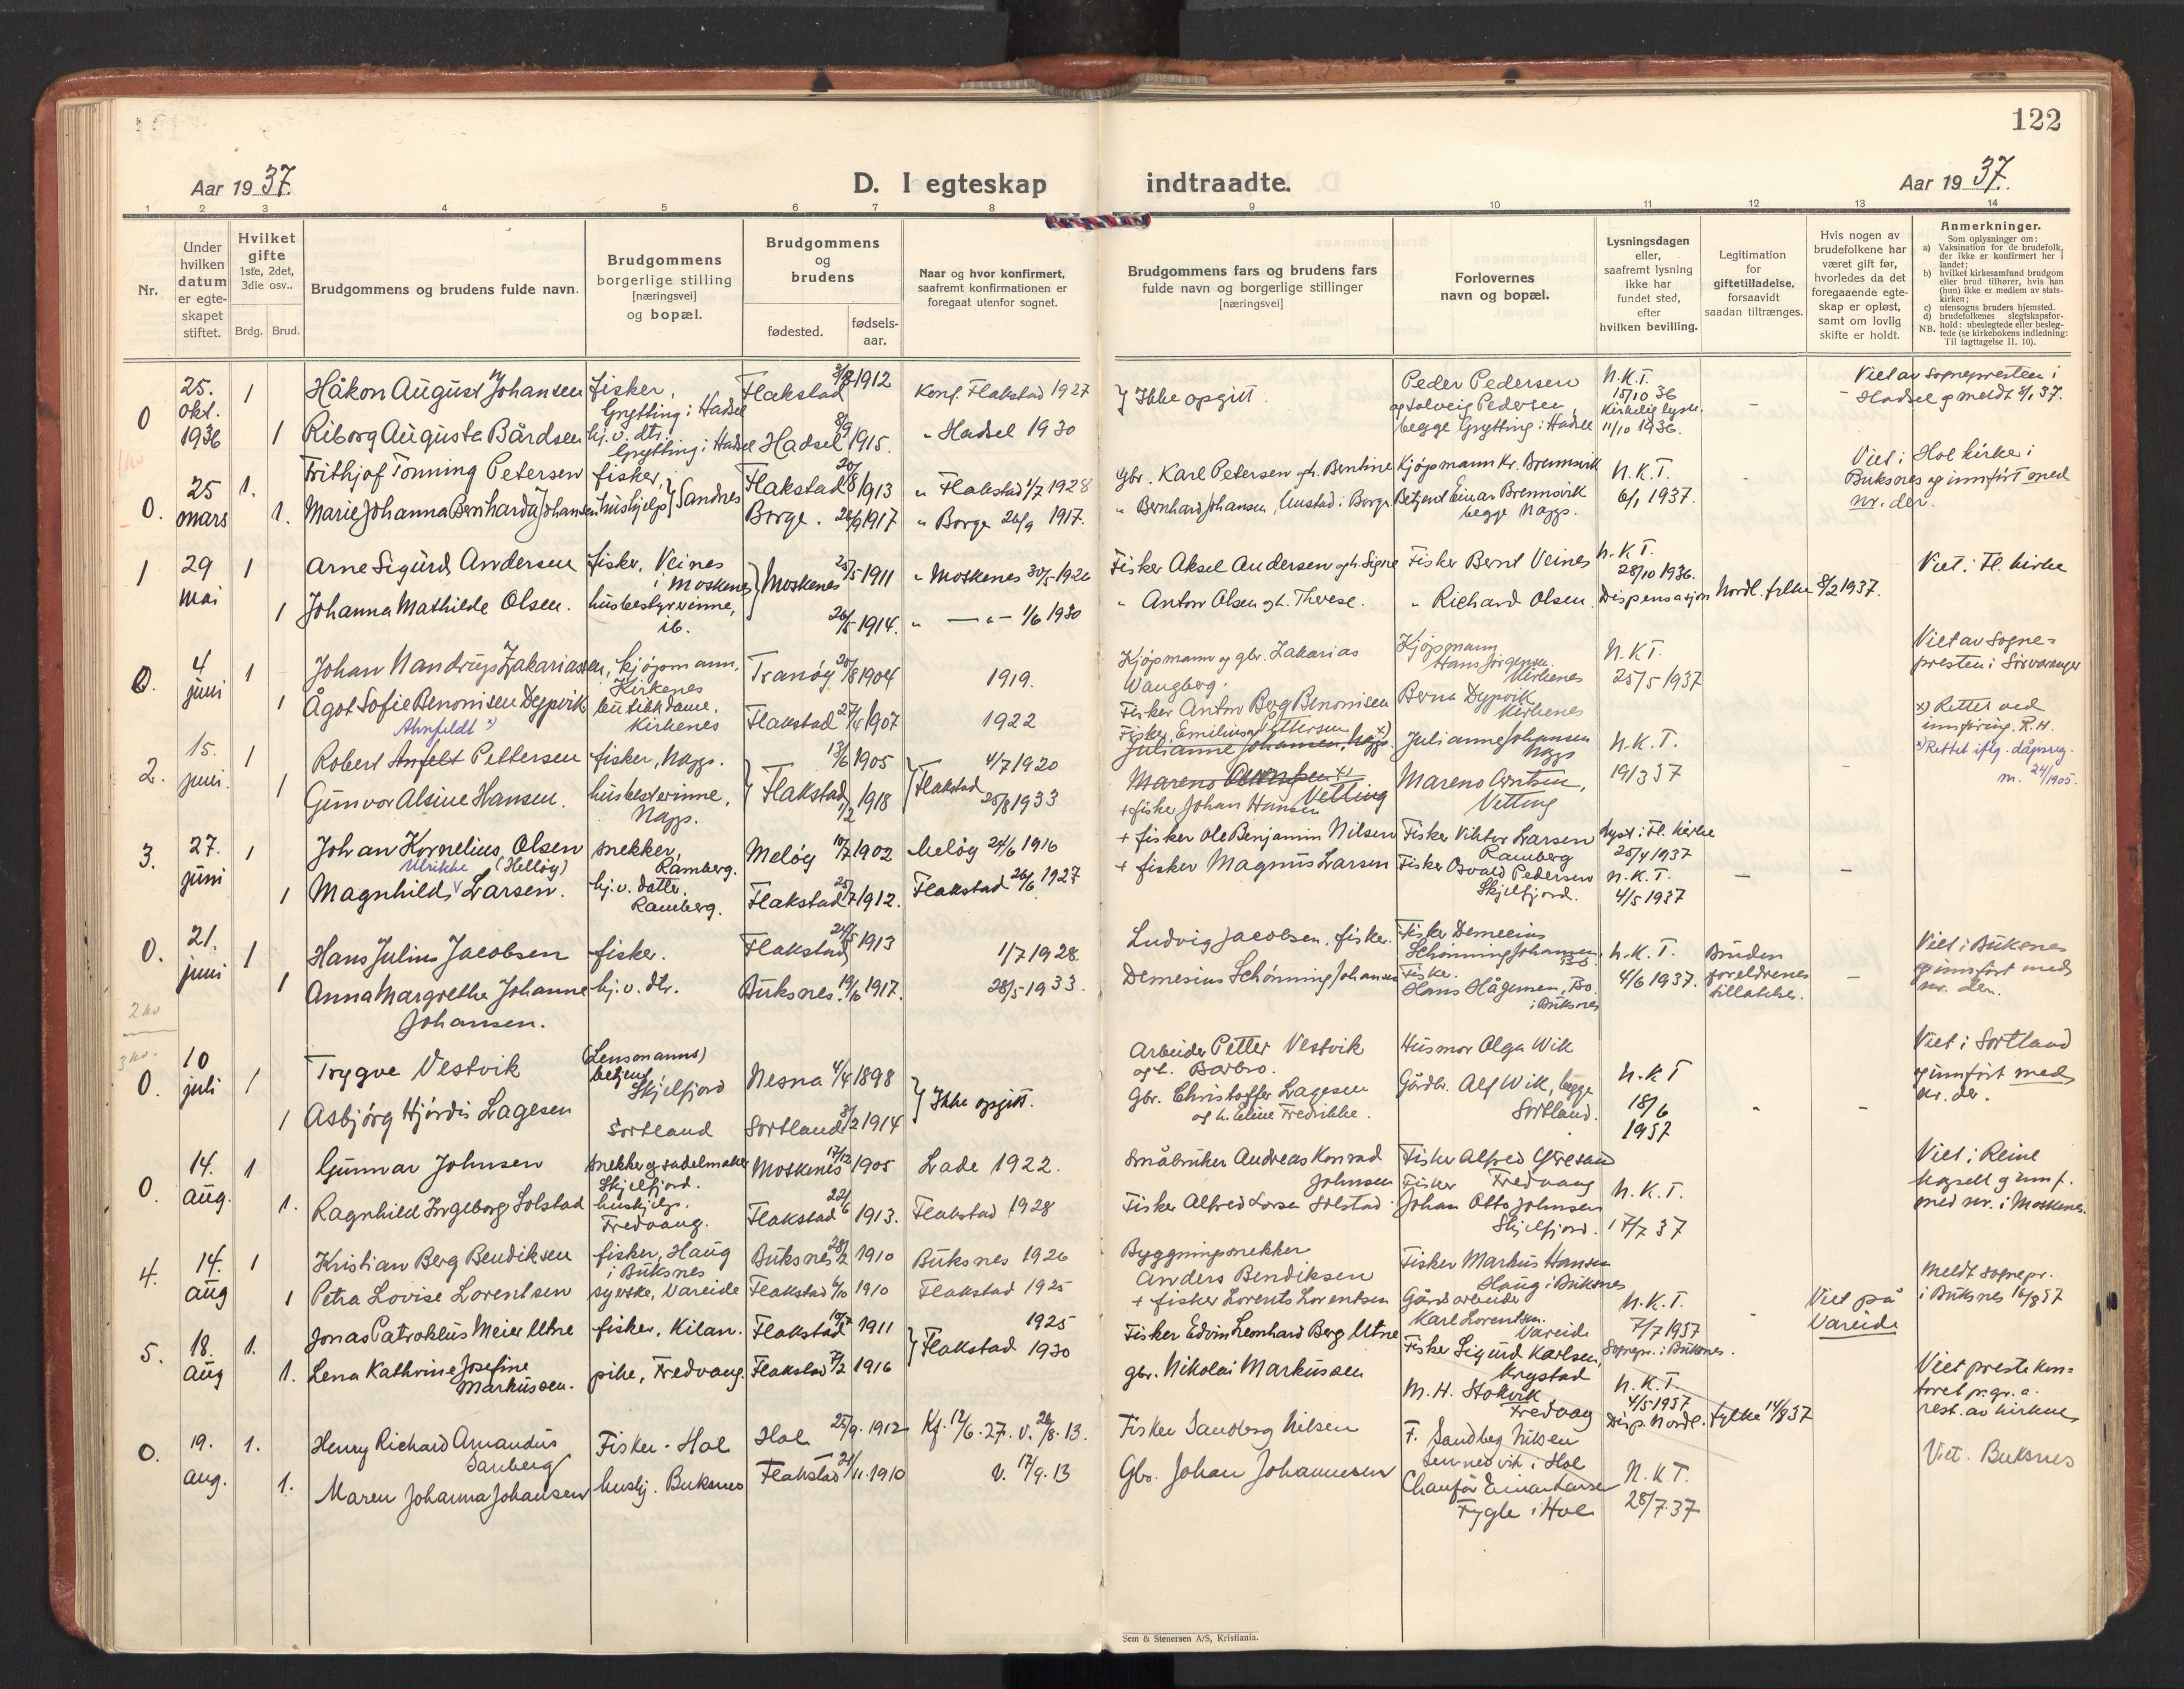 122
Aar 19 37.
D. I egteskap indtraadte.
Aar 19 37.
1 2 3 4 5 6 7 8 9 10 11 12 13 14
Nr.
Under hvilken datum er egteskapet stiftet.
Hvilket gifte 1ste, 2det, 3die osv..
Brdg. Brud.
Brudgommens og brudens fulde navn.
Brudgommens borgerlige stilling [næringsvei] og bopæl.
Brudgommens og brudens
fødested. fødsels-aar.
Naar og hvor konfirmert, saafremt konfirmationen er foregaat utenfor sognet.
Brudgommens fars og brudens fars fulde navn og borgerlige stillinger [næringsvei]
Forlovernes navn og bopæl.
Lysningsdagen eller, saafremt lysning ikke har fundet sted, efter hvilken bevilling.
Legitimation for giftetilladelse, forsaavidt saadan tiltrænges.
Hvis nogen av brudefolkene har været gift før, hvorledes da det foregaaende egteskap er opløst, samt om lovlig skifte er holdt.
Anmerkninger.
Som oplysninger om:
a) Vaksination for de brudefolk, der ikke er konfirmert her i landet;
b) hvilket kirkesamfund brudgom eller brud tilhører, hvis han (hun) ikke er medlem av statskirken;
c) utensogns bruders hjemsted.
d) brudefolkenes slegtskapsforhold: ubeslegtede eller beslegtede (se kirkebokens indledning:
NB. Til iagttagelse II. 10).
0 25. okt. 1936 1 Håkon August Johansen fisker, Grytting i Hadsel Flakstad 1912 Konf. Flakstad 1927
} Ikke opgitt. Peder Pedersen og Solveig Pedersen, begge Grytting i Hadsel N.K.T. 15/10 36 Kirkelig lysn. 11/10 1936. - Viet av sognepresten i Hadsel og meldt 37.
1 Riborg Auguste Bårdsen hj. v. dtr. Grytting i Hadsel Hadsel 8/9 1915. " Hadsel 1930
0. 25 mars 1. Frithjof Tonning Petersen fisker, } Sandnes Flakstad 20/8 1913 " Flakstad 1/7 1928
Gbr. Karl Petersen og h. Bentine Kjøpmann Kr. Brennvik N.K.T. 6/1 1937. Viet i Hol kirke i Buksnes og innført med nr. der.
1. Marie Johanna Bernharda Johansen hushjelp Borge. 26/9 1917 " Borge 26/9 1917.
" Bernhard Johansen, Unstad i Borge. Betjent Einar Brennvik begge Napp.
1 29 mai 1 Arne Sigurd Andersen fisker, Veines i Moskenes } Moskenes 25/5 1911 " Moskenes 30/5 1926
Fisker Aksel Andersen og h. Signe Fisker Bernt Veines N.K.T. 28/10 1936. Viet i Fl. kirke
1 Johanna Mathilde Olsen. husbestyrerinne, ib. 26/5 1914. " — " — 1/6 1930
" Anton Olsen og h. Therese. " Richard Olsen. Dispensasjon Nordl. fylke 8/2 1937.
0. 4 juni 1 Johan Nandrup Zakariassen, kjøpmann, Kirkenes Tranøy 20/8 1904 1919.
Kjøpmann og gbr. Zakarias Wangberg. Kjøpmann Hans Jørgensen. Kirkenes N.K.T. 25/5 1937 Viet av sognepresten i Sørvaranger
1 Ågot Sofie Benonisen Dypvik butikkdame. Kirkenes Flakstad 1907 1922
Fisker Anton Berg Benonisen Berna Dypvik Kirkenes
x) Rettet ved innføring. R.H.
2. 15. juni. 1 Robert Anfelt Pettersen fisker, Napp. 13/6 1905 4/7 1920
Ahnfeldt
Fisker Emilius Pettersen x)
Julianne Johansen, Napp. Julianne Johansen Napp N.K.T. 19/3 37 - Rettet iflg. dåpsreg. m. 24/1905.
1 Gunvor Alsine Hansen. husbestyrerinne, Napp. } Flakstad 1/2 1918 } Flakstad 25/8 1933
Mareno Arntsen x) Vetting Mareno Arntsen, Vetting
+ fisker Johan Hansen
3. 27. juni 1 Johan Kornelius Olsen (Helløy) snekker, Ramberg. Meløy 10/7 1902 Meløy 24/6 1916
+ fisker Ole Benjamin Nilsen Fisker Viktor Larsen Ramberg Lyst i Fl. kirke 25/4 1937
1 Magnhild Ulrikke Larsen. hj. v. datter. Ramberg. Flakstad 25/7 1912. Flakstad 26/6 1927
+ fisker Magnus Larsen Fisker Osvald Pedersen Skjelfjord. N.K.T. 4/5 1937 - -
0. 21. juni 1 Hans Julius Jacobsen fisker. Flakstad 1913 1/7 1928
Ludvig Jacobsen, fisker. Fisker Demesius Schønning Johansen Bø N.K.T. 4/6 1937. Bruden foreldrenes tillatelse. - Viet i Buksnes og innført med nr. der.
1 Anna Margrethe Johanne Johansen. hj. v. dtr. Buksnes. 19/6 1917. 28/5 1933.
Demesius Schønning Johansen Fisker. Hans Hågensen, Bø i Buksnes
0. 10 juli 1 Trygve Vestvik (Lensmanns) betjent, Skjelfjord Nesna 4/4 1898 } Ikke opgitt.
Arbeider Petter Vestvik og h. Barbro. Husmor Olga Wik N.K.T 18/6 1937 " - Viet i Sortland og innført med nr. der.
1 Asbjørg Hjørdis Lagesen Sortland Sortland 3/2 1914
Gbr. Christoffer Lagesen og h. Eline Fredrikke. Gårdbr. Alf Wik, begge Sortland.
0. 14. aug. 1 Gunnar Johnsen snekker og sadelmaker Skjelfjord. Moskenes 17/12 1905 Lade 1922.
Småbruker Andreas Konrad Johnsen Fisker Alfred Fredvang N.K.T. 17/7 37 Viet i Reine kapell og innf. med nr. i Moskenes.
1. Ragnhild Ingeborg Solstad hushjelp. Fredvang. Flakstad 22/6 1913. Flakstad 1928
Fisker Alfred Solstad Fisker Johan Otto Johnsen Skjelfjord.
4. 14. aug 1 Kristian Berg Bendiksen fisker, Haug i Buksnes Buksnes 28/2 1910 Buksnes 1926
Byggningssnekker Anders Bendiksen Fisker Markus Hansen Haug i Buksnes Meldt sognepr. i Buksnes 16/8 37
1 Petra Lovise Lorentsen syerske, Vareide Flakstad 1910 Flakstad 1925
+ fisker Lorents Lorentsen Gårdsarbeider Karl Lorentsen Vareide N.K.T. 7/7 1937 Sognepr. i Buksnes. - Viet på Vareide
5. 18. aug 1. Jonas Patroklus Meier Utne fisker, Kilan. Flakstad 1911 } Flakstad 1925
Fisker Edvin Leonhard Berg Utne Fisker Sigurd Karlsen, Krystad
1. Lena Kathrine Josefine Markussen. pike, Fredvang. Flakstad 7/2 1916 1930
gbr. Nikolai Markussen M. H. Stokvik Fredvang N.K.T. 4/5 1937 Disp. Nordl. fylke 14/8 37 Viet prestekontoret p. gr. a. rest. av kirken
0. 19. aug. 1. Henry Richard Amandus Sandberg Fisker - Hol Hol 25/9. 1912 Kf. 12/6. 27. v. 26/8. 13.
Fisker Sandberg Nilsen F. Sandberg Nilsen Sennesvik i Hol N.K.T. 28/7 37 Viet. Buksnes
1. Maren Johanna Johansen hushj. Buksnes Flakstad 21/11. 1910 v. 17/9. 13
Gbr. Johan Johannesen Chaufør Einar Hansen Fygle i Hol
Sem & Stenersen A/S, Kristiania.